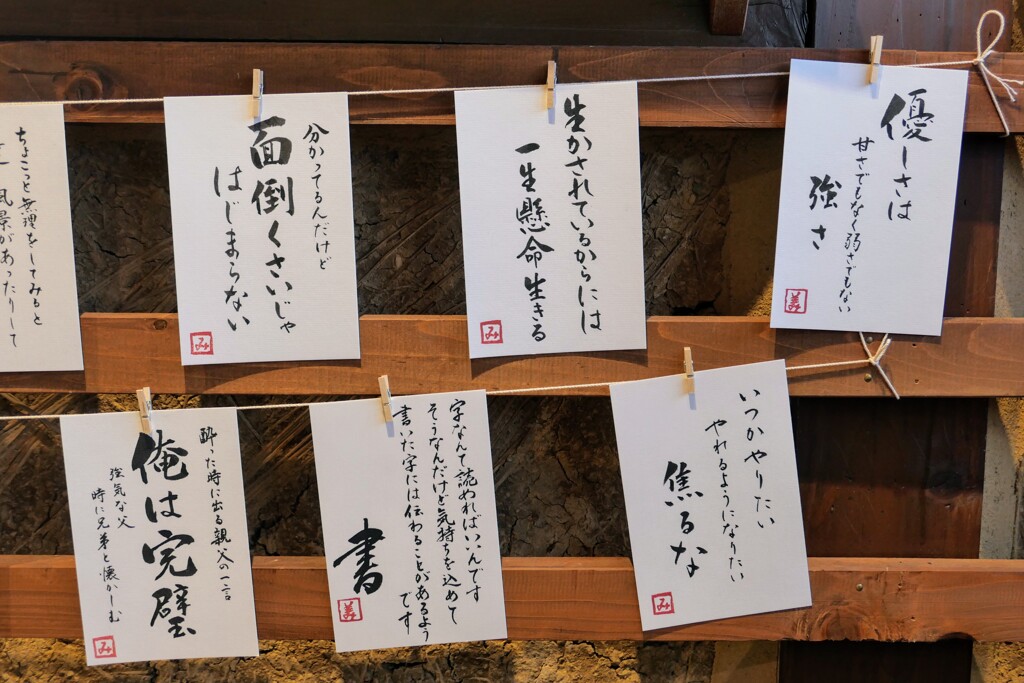 優しさは
甘さでもなく弱さでもない
強さ
美
生かされているからには
一生懸命生きる
み
分かってるんだけど
面倒くさいじゃ
はじまらない
み
ちょこっと無理をしてみると
風景があったりして
いつかやりたい
やれるようになりたい
焦るな
み
字なんて読めればいいんです
そうなんだけど気持ちを込めて
書いた字には伝わることがあるよう
です
書
美
酔った時に出る親父の一言
俺は完璧
強気な父
時に兄弟と懐かしむ
み